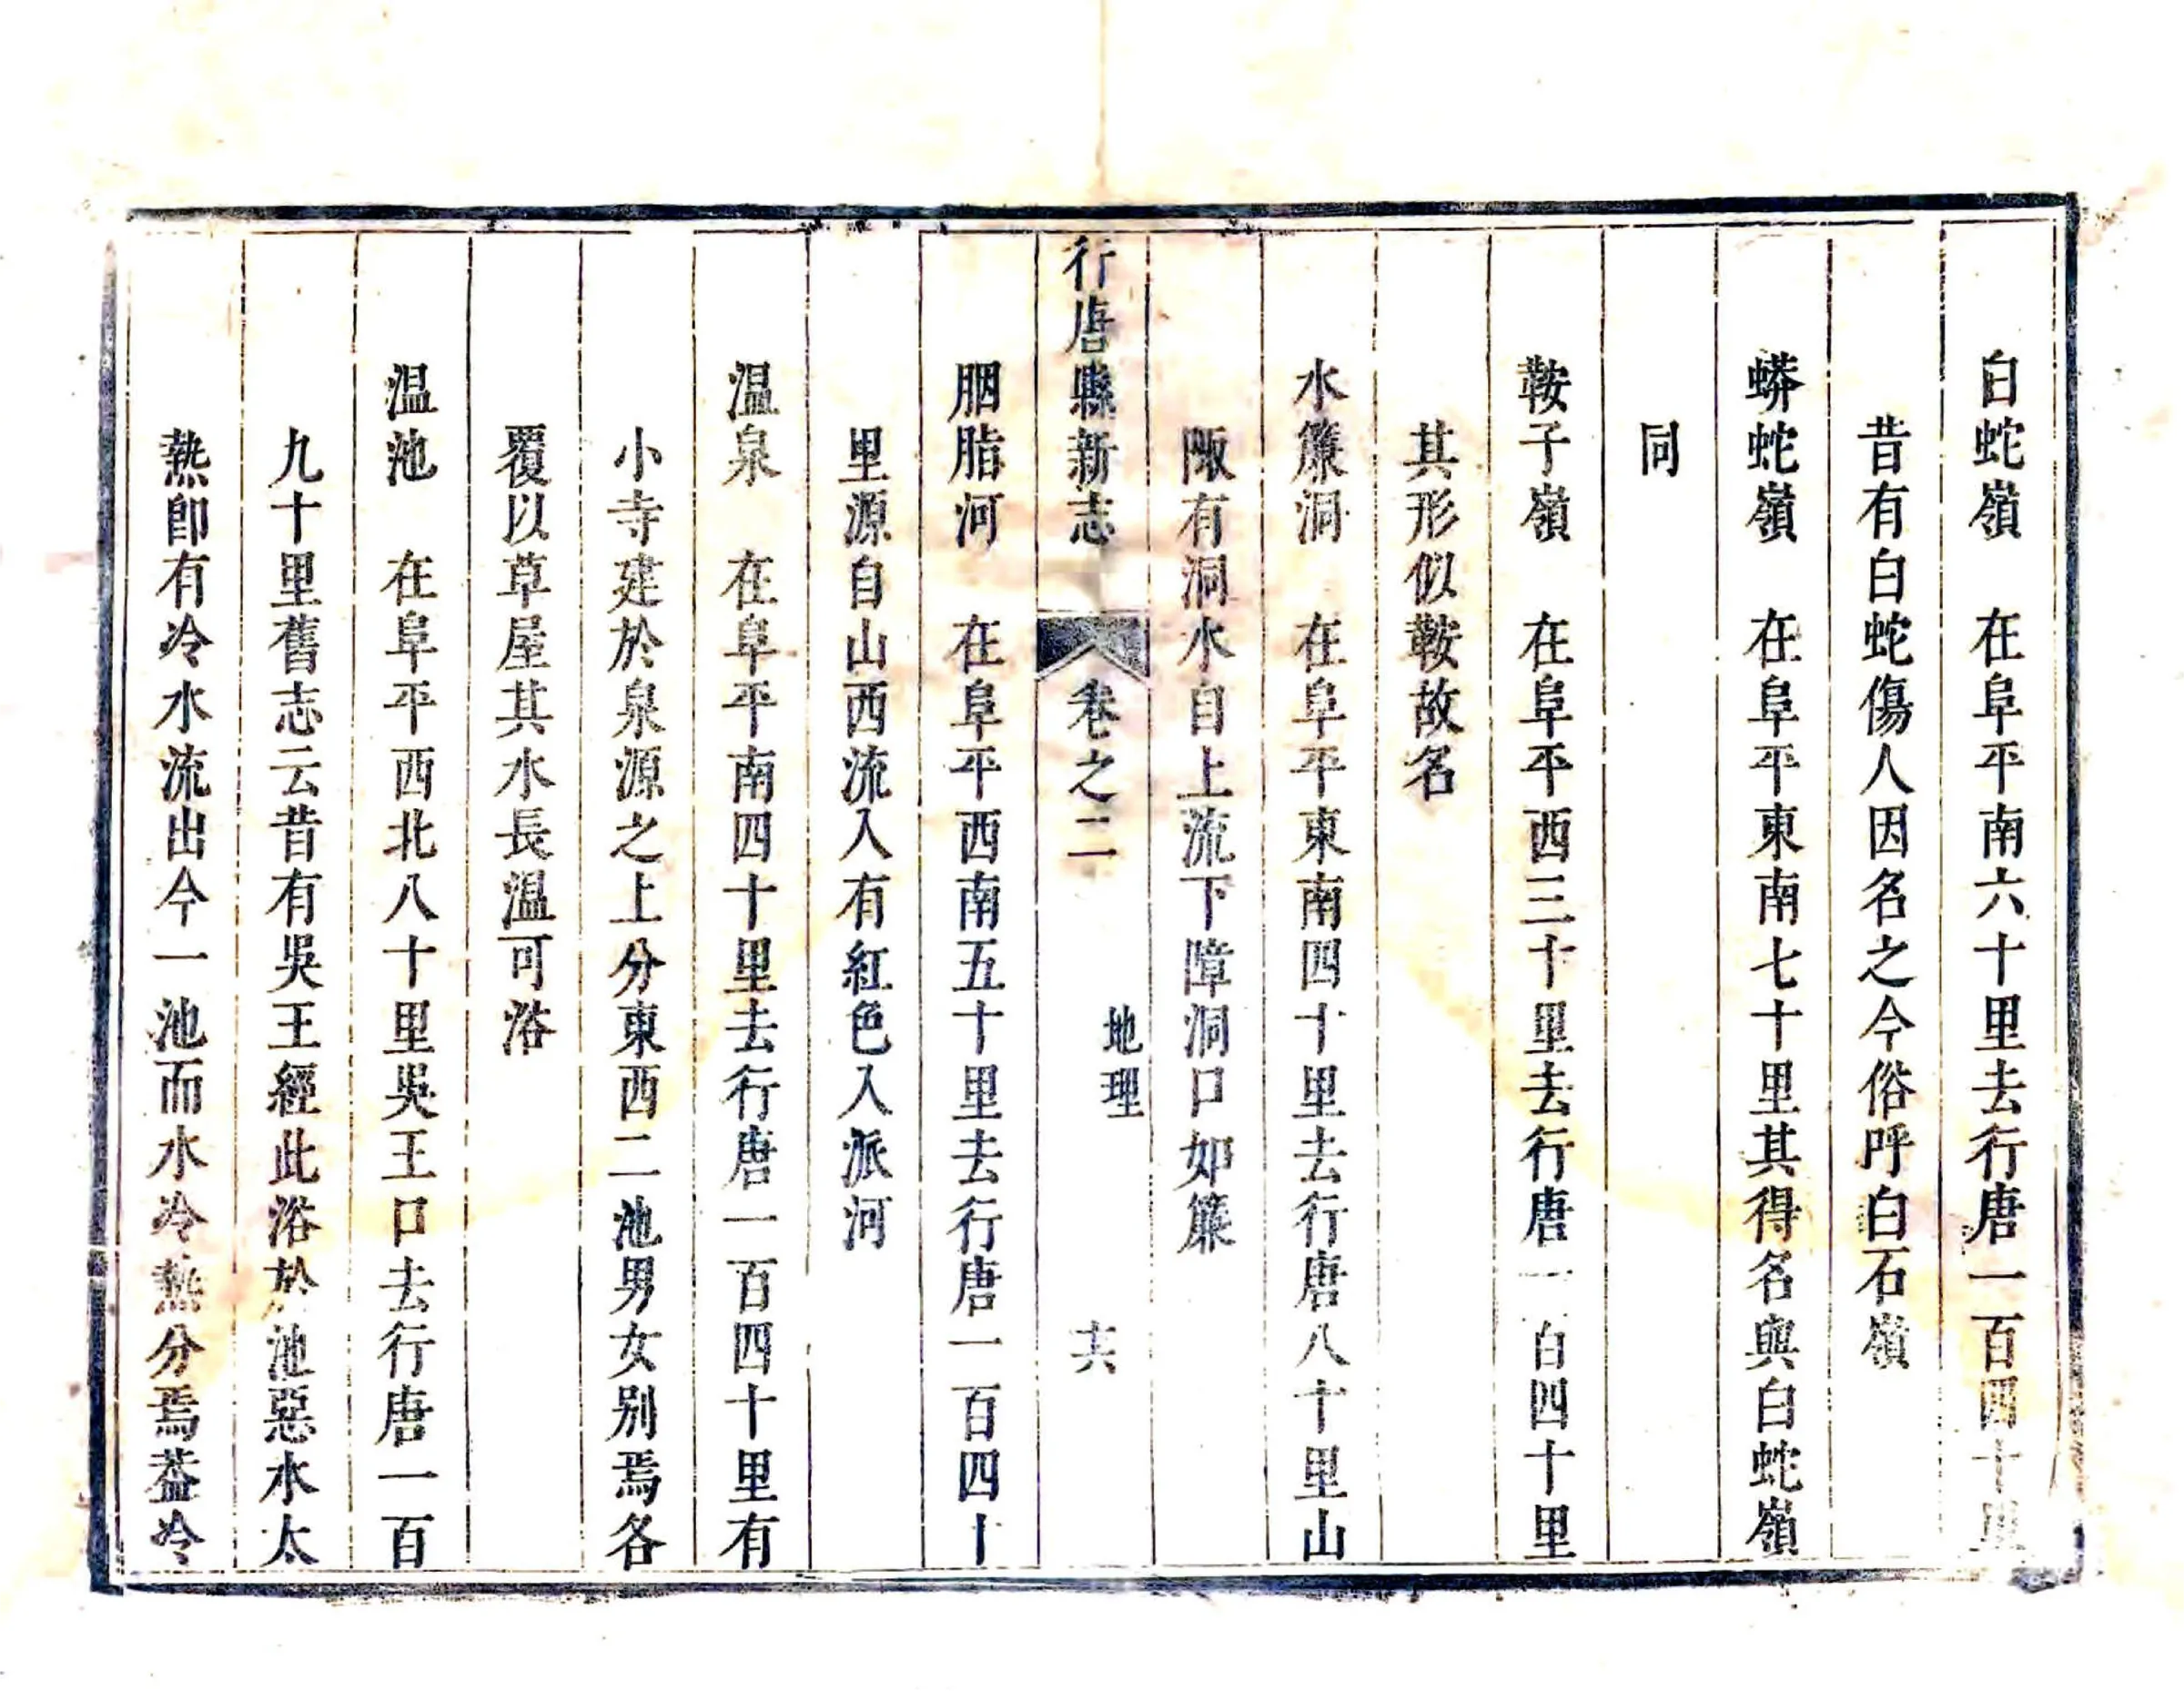 白蛇嶺 在阜平南六十里去行唐一百四十里
昔有白蛇傷人因名之今俗呼白石嶺
蟒蛇嶺 在阜平東南七十里其得名與白蛇嶺
同
鞍子嶺 在阜平西三十里去行唐一百四十里
其形似鞍故名
水簾洞 在阜平東南四十里去行唐八十里山
陬有洞水自上流下障洞口如簾
行唐縣新志 卷之二 地理 十六
胭脂河 在阜平西南五十里去行唐一百四十
里源自山西流入有紅色入派河
温泉 在阜平南四十里去行唐一百四十里有
小寺建於泉源之上分東西二池男女别焉各
覆以草屋其水長温可浴
温池 在阜平西北八十里吳王口去行唐一百
九十里舊志云昔有吳王經此浴於池惡水太
熱卽有冷水流出今一池而水冷熱分焉葢冷